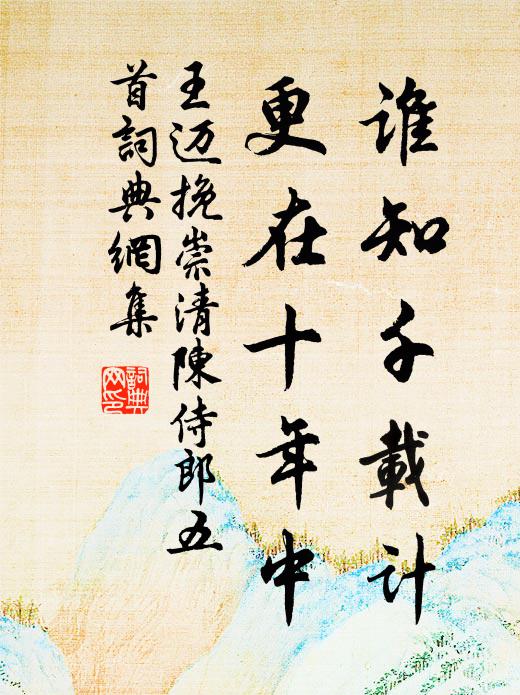 谁知千載计
更在十年中
王迈挽崇清陳侍郎五
首詞典網集
詞典
网印